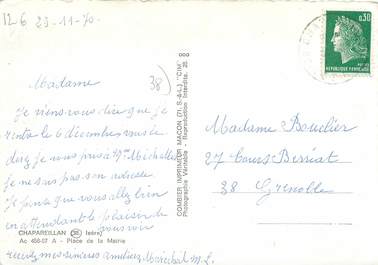 126 23-11-70
38)
Madame
Je viens vous dire que je
rentre le 6 décembre vous le
direz je vous pris à Mme Michallet
je ne sais pas son adresse
Je pense que vous allez bien
en attendant le plaisir de
vous voir
recevez mes sincères amitiés Maréchal M. L.
CHAPAREILLAN (38) (Isère)
Ac 458-57 A - Place de la Mairie
COMBIER IMPRIMEUR MACON (71, S.-&-L.) "CIM"
Photographie Véritable - Reproduction Interdite.
0,30
REPUBLIQUE FRANCAISE
Madame Bouclier
27 Cours Berriat
38 Grenoble